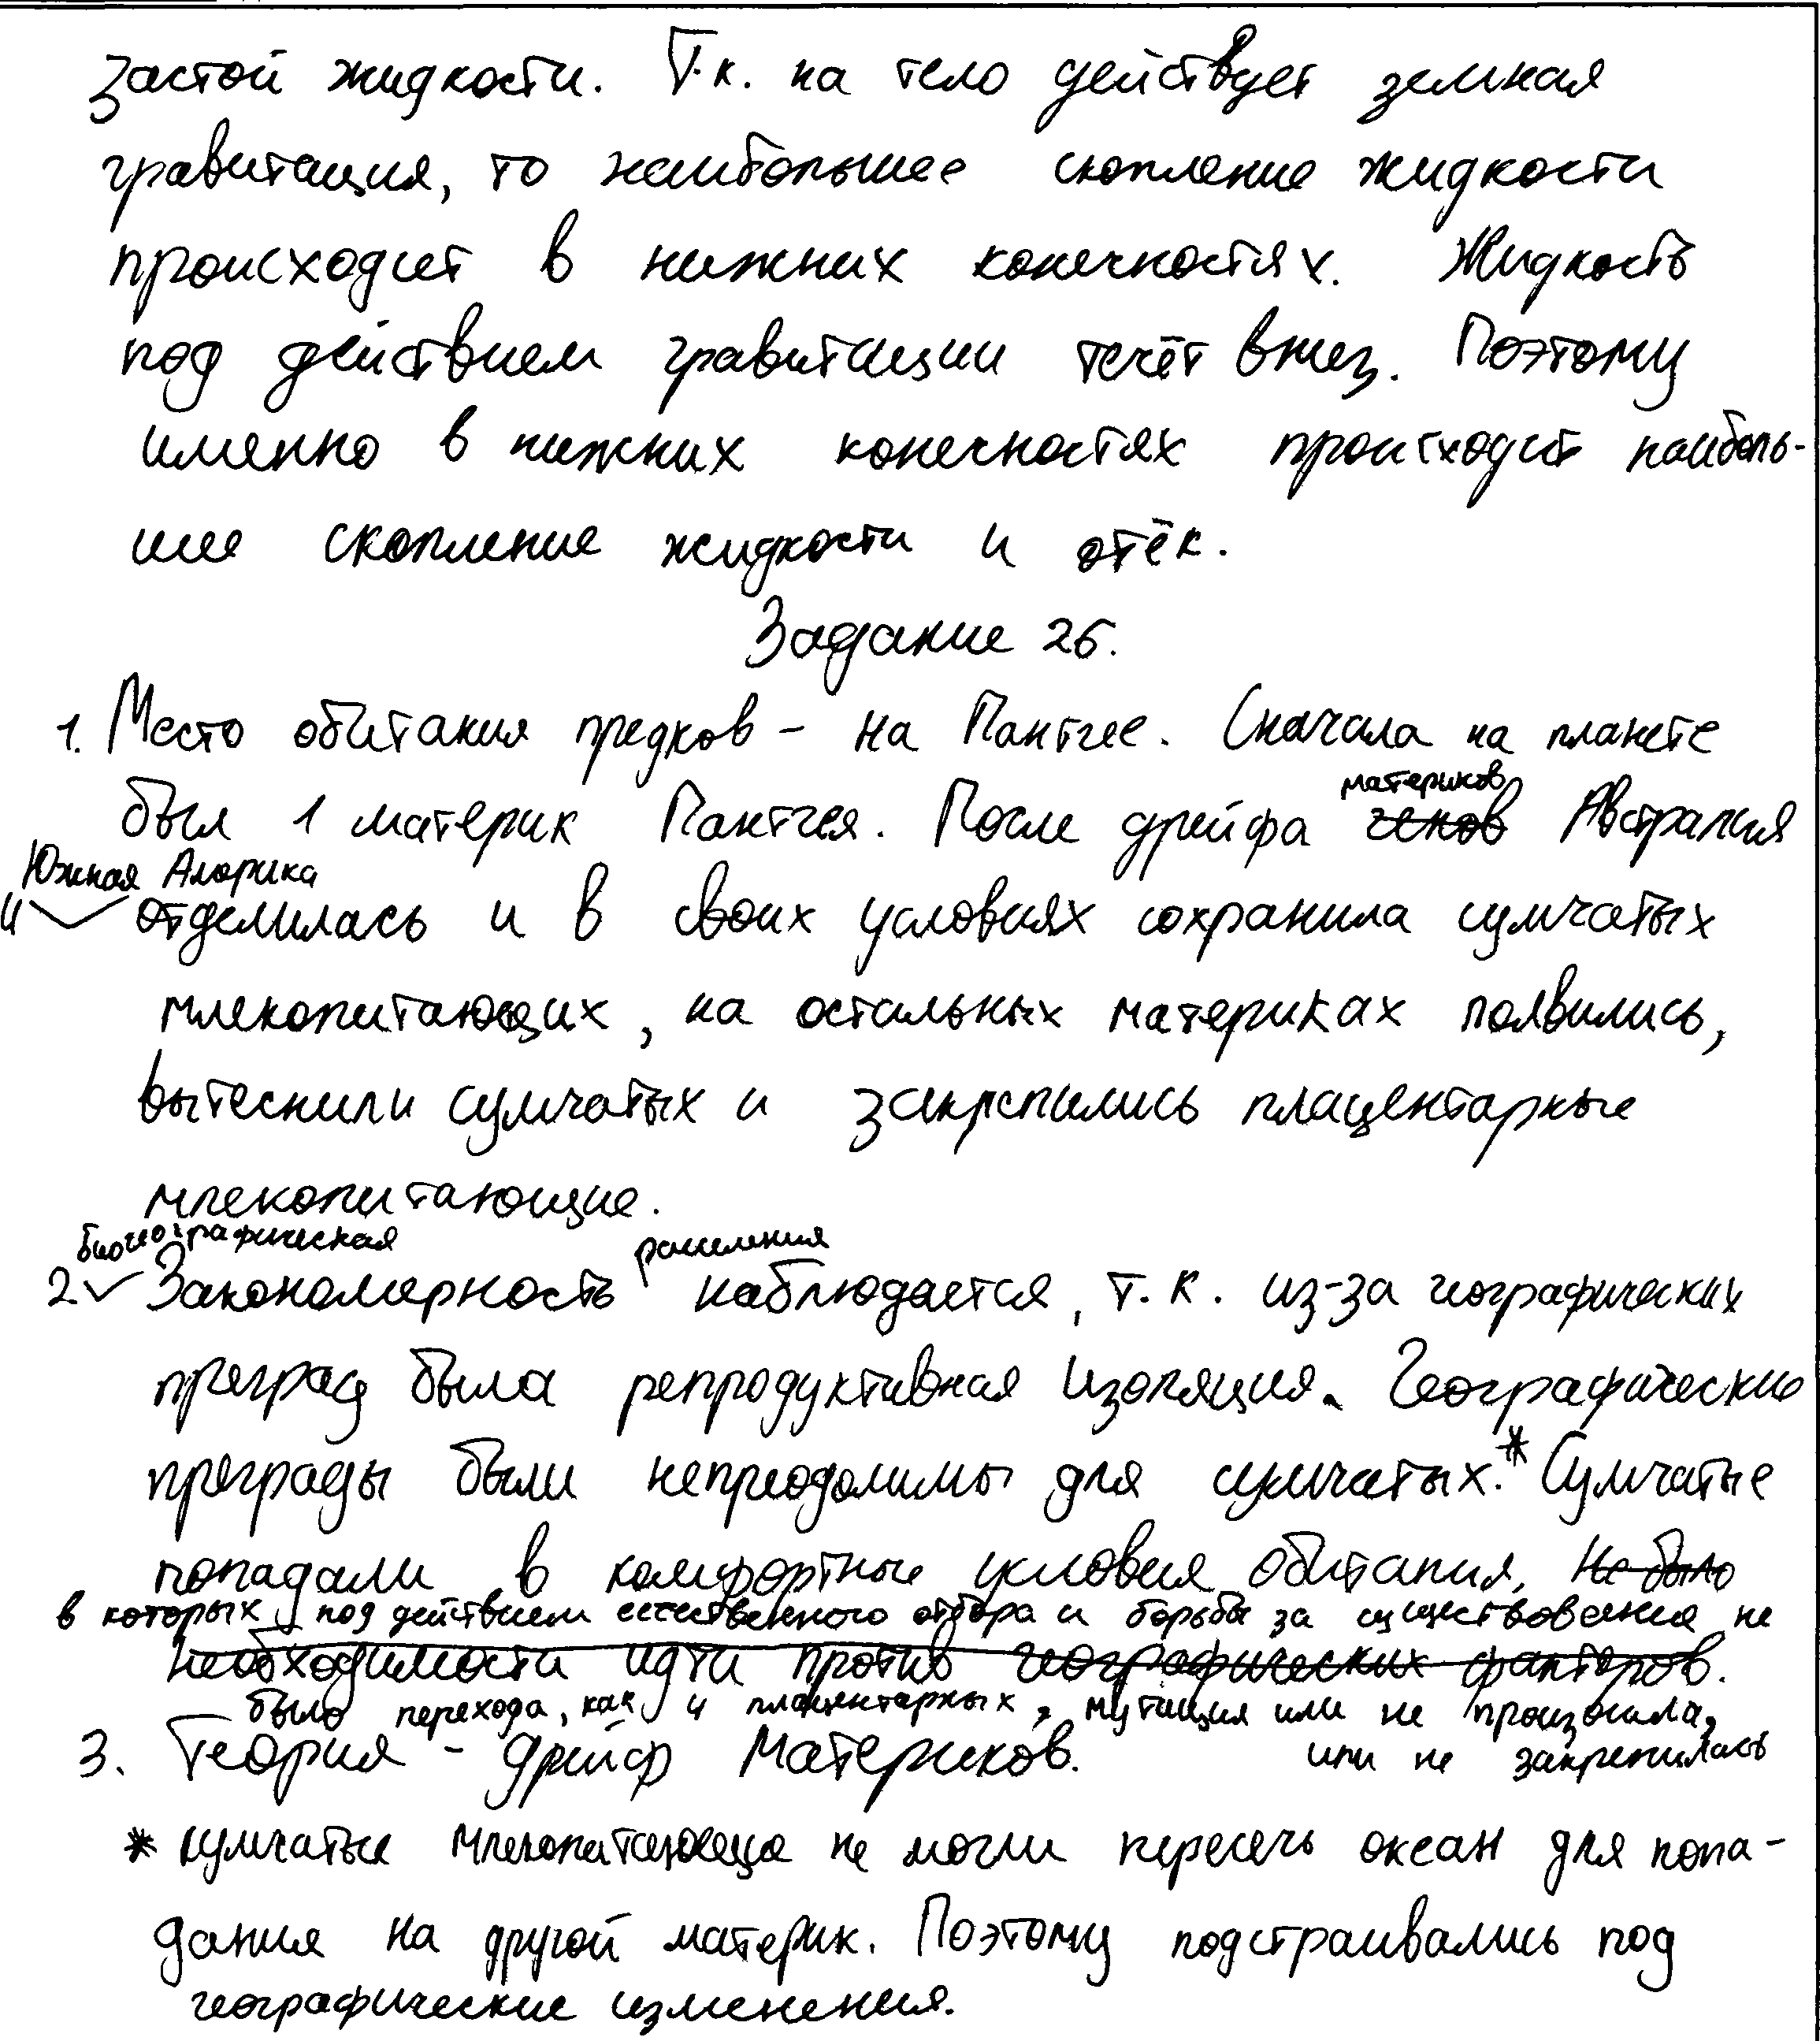 застой жидкости. Т.к. на тело действует земная
гравитация, то наибольшее скопление жидкости
происходит в нижних конечностях. Жидкость
под действием гравитации течёт вниз. Поэтому
именно в нижних конечностях происходит наиболь-
шее скопление жидкости и отёк.
Задание 26.
1. Место обитания предков – на Пангее. Сначала на планете
материков
был 1 материк Пангея. После дрейфа Австралия
Южная Америка
и отделилась и в своих условиях сохранила сумчатых
млекопитающих, на остальных материках появились,
вытеснили сумчатых и закрепились плацентарные
млекопитающие.
биогеографическая расселения
2. Закономерность наблюдается, т.к. из-за географических
преград была репродуктивная изоляция. Географические
преграды были непреодолимы для сумчатых.* Сумчатые
попадали в комфортные условия обитания, не было
в которых под действием естественного отбора и борьбы за существования не
необходимости идти против географических факторов.
было перехода, как у плацентарных, мутация или не произошла,
или не закрепилась
3. Теория – дрейф материков.
* сумчатые млекопитающие не могли пересечь океан для попа-
дания на другой материк. Поэтому подстраивались под
географические изменения.